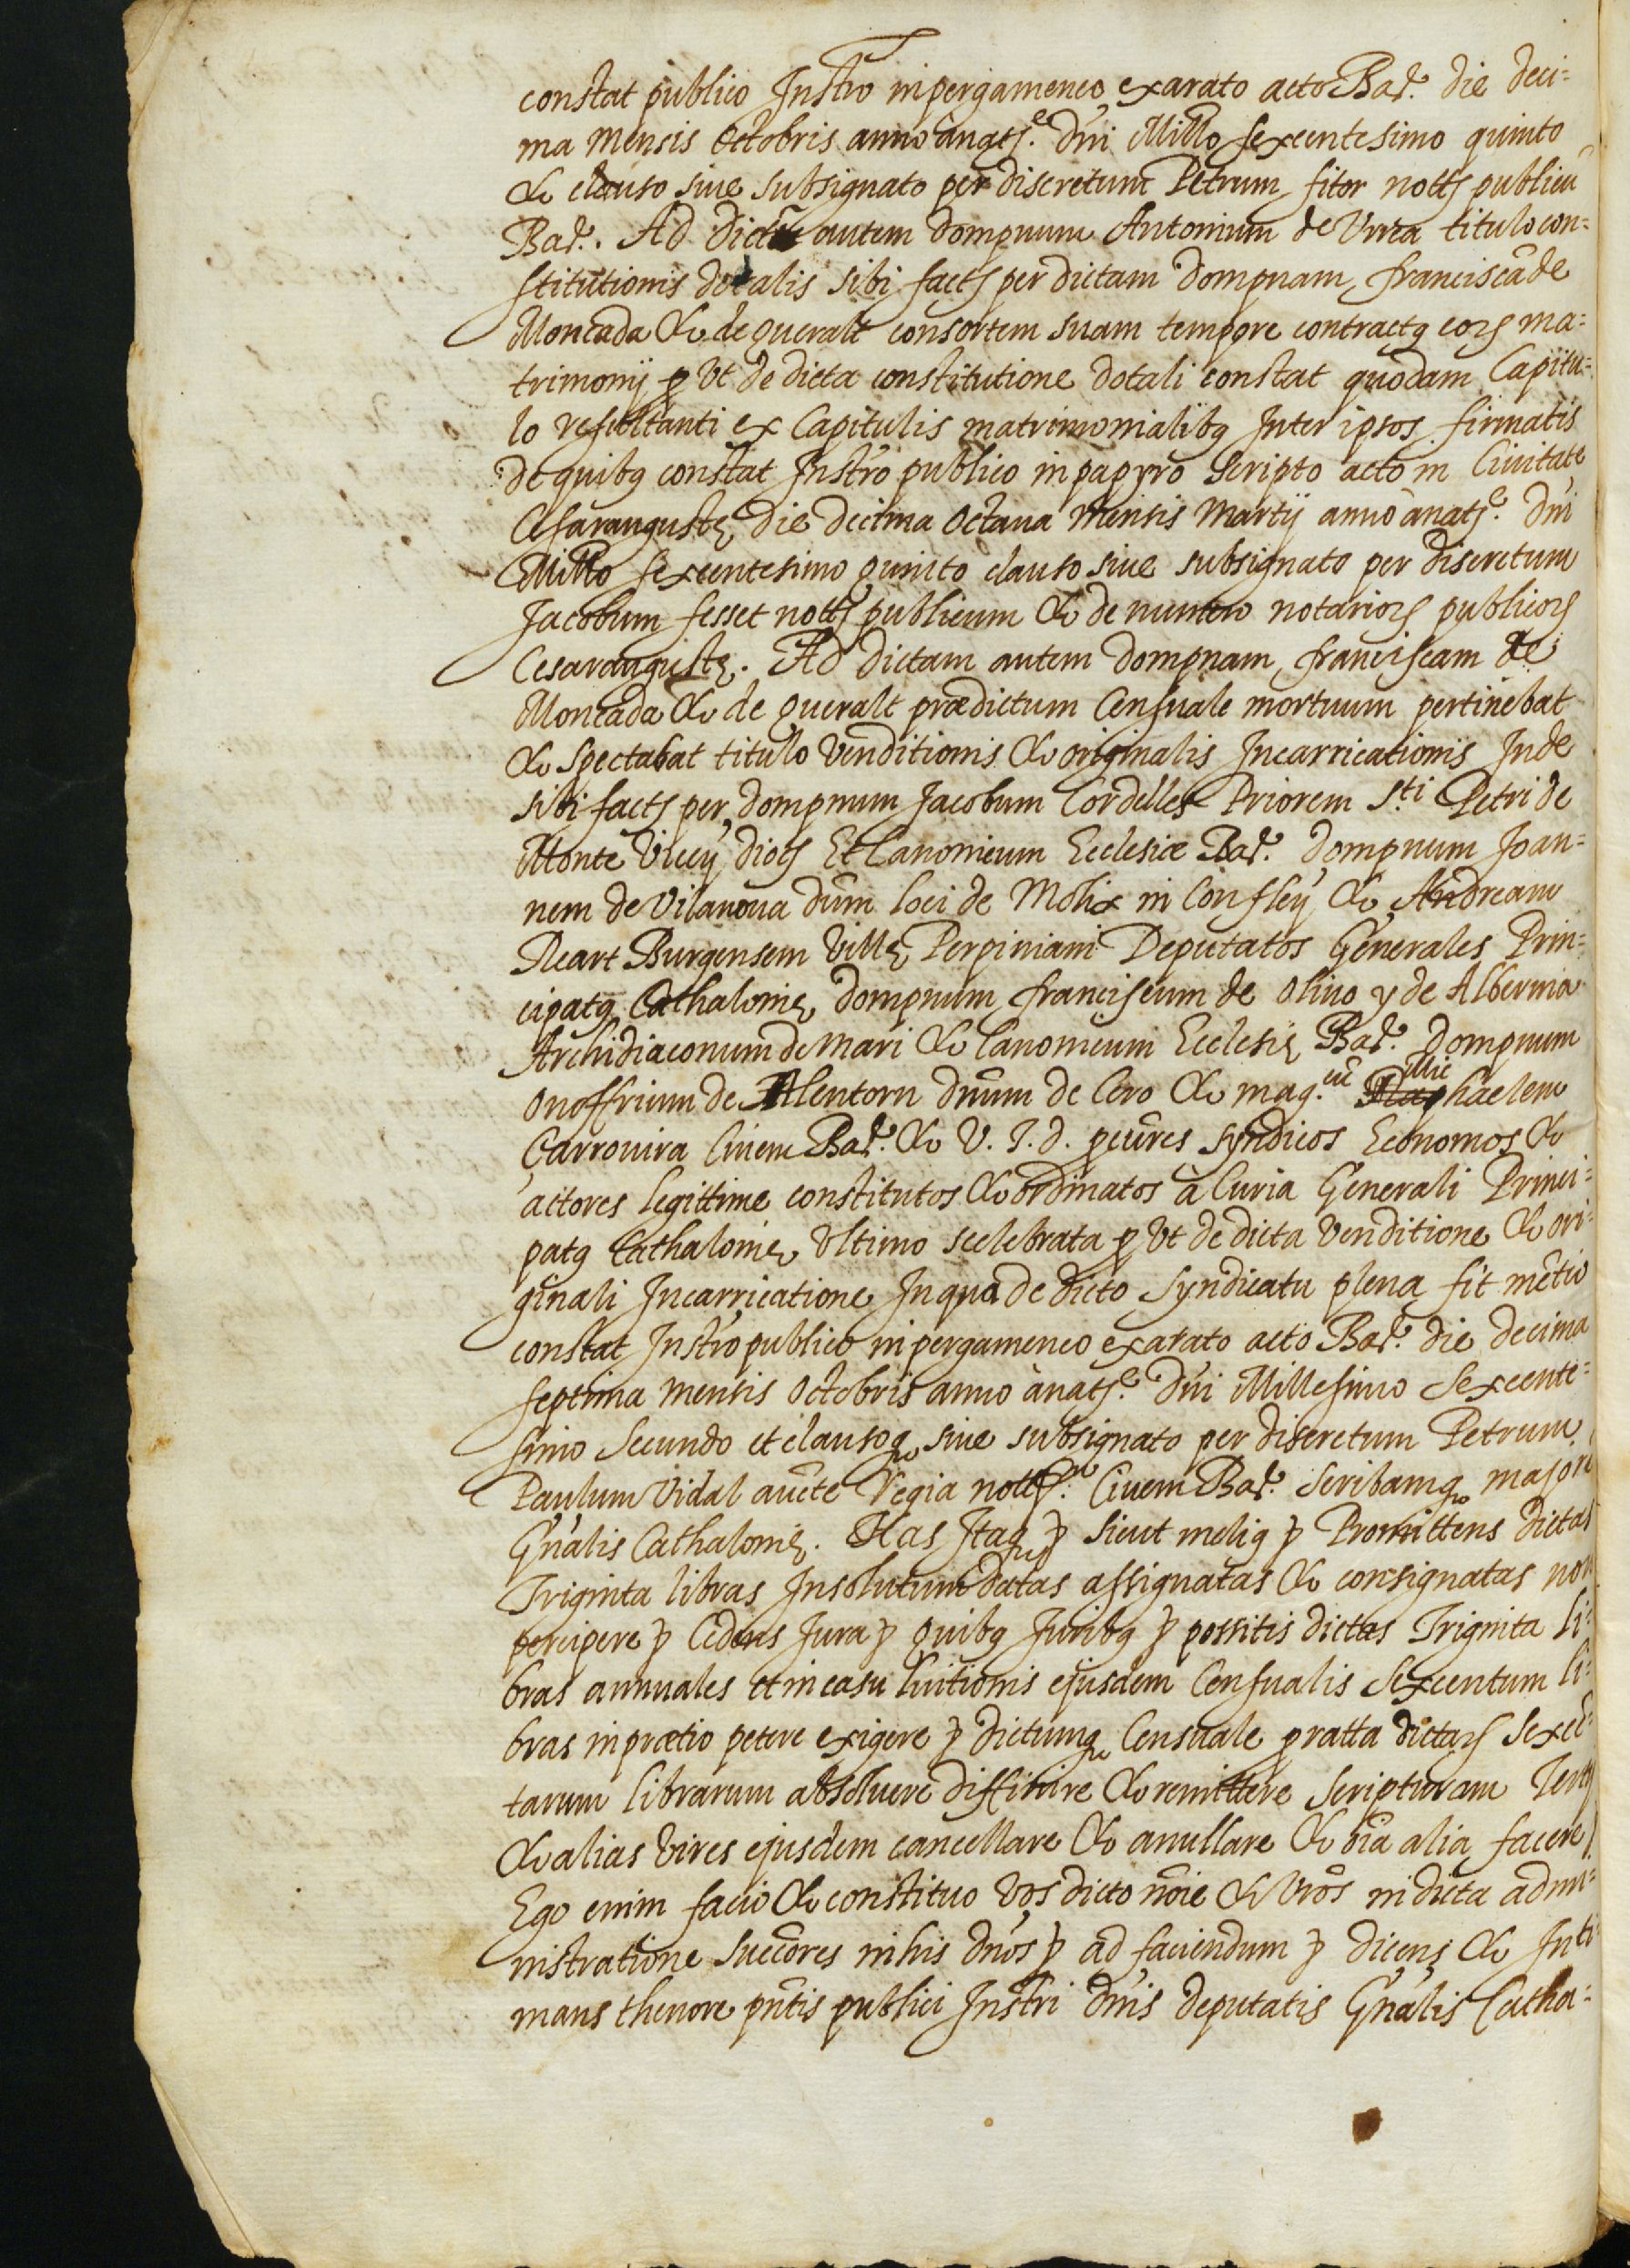 constat publico Instro in pergameneo exarato acto Bar.e die deci=
ma mensis Octobris anno a nate. Dni Millo sexcentesimo quinto
& clauso sive subsignato per discretum Petrum fitor notts publicũ
Bar.e. Ad dictũ autem dompnum Antonium de Vrrea titulo con=
stitutionis dotalis sibi facts per dictam dompnam franciscã de
Moncada & de queralt consortem suam tempore contractq eorʒ ma=
trimonij p vt de dicta constitutione dotali constat quodam Capitu=
lo resultanti ex Capitulis matrimonialibq Inter ipsos firmatis
de quibq constat Instro publico in papyro scripto acto in Ciuitate
Cesaraugustę die decima octaua mensis Martij anno a nate. Dni
Millo sexcentesimo quinto clauso siue subsignato per discretum
Jacobum fesset notts publicum & de numero notariorʒ publicorʒ
Cesaraugustę. Ad dictam autem dompnam franciscam de
Moncada & de queralt prædictum Censuale mortuum pertinebat
& spectabat titulo venditionis & originalis Incarricationis Inde
sibi facts per dompnum Jacobum Cordelles Priorem S.ti Petri de
Monte diocs Et Canonicum Ecclesiæ Bar.e dompnum Joan=
nem de Vilanoua dũm loci de Molix in Confley & Andream
Reart Burgensem Villę Perpiniani Deputatos Generales Prin=
cipatq Cathalonię dompnum franciscum de Oliuo y de Albernia
Archidiaconum de mari & Canonicum Ecclesię Bar.e dompnum
Onoffrium de Alentorn dnũm de Cero & mag.cũ Mic Raphaelem
Çarrouira Ciuem Bar.e & V. J. d. pcũres syndicos Economos &
actores legittime constitutos & ordinatos à Curia Generali Princi=
patq Cathalonię vltimo scelebrata p vt de dicta venditione & ori=
ginali Incarricatione In qua de dicto Syndicatu plena fit mẽtio
constat Instro publico in pergameneo exarato acto Bar.e die decima
septima mensis Octobris anno a nate. Dni Millesimo Sexcente=
simo Secundo et clausoq siue subsignato per discretum Petrum
Paulum Vidal aucte Regia notts. Ciuem Bar.e Scribamq majorẽ
Gñalis Cathalonię. Has Itaq ꝑ sicut meliq ꝑ Promittens dictas
Triginta libras Insolutum datas assignatas & consignatas non
percipere ꝑ Cedens Jura ꝑ quibq Juribq ꝑ possitis dictas Triginta li=
bras annuales et in casu luitionis ejusdem Censualis Sexcentum li=
bras in prætio petere exigere ꝑ dictumq Censuale p ratta dictarʒ sexcẽ=
tarum librarum absoluere diffinire & remittere scripturam
& alias vires ejusdem cancellare & anullare & oĩa alia facere
Ego enim facio & constituo vos dicto nõie & vrõs in dicta admi=
nistratione succõres in his dnõs ꝑ ad faciendum ꝑ dicens & Inti=
mans thenore pñtis publici Instri dñis deputatis Gñalis Catha=